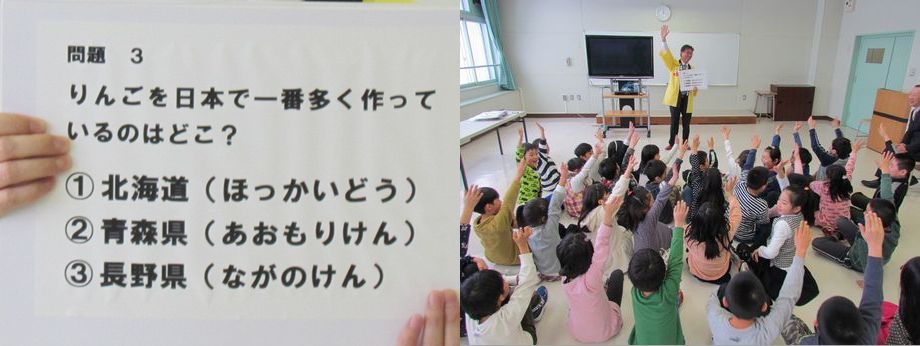 問題 3
りんごを日本で一番多く作って
いるのはどこ？
① 北海道（ほっかいどう）
② 青森県（あおもりけん）
③ 長野県（ながのけん）